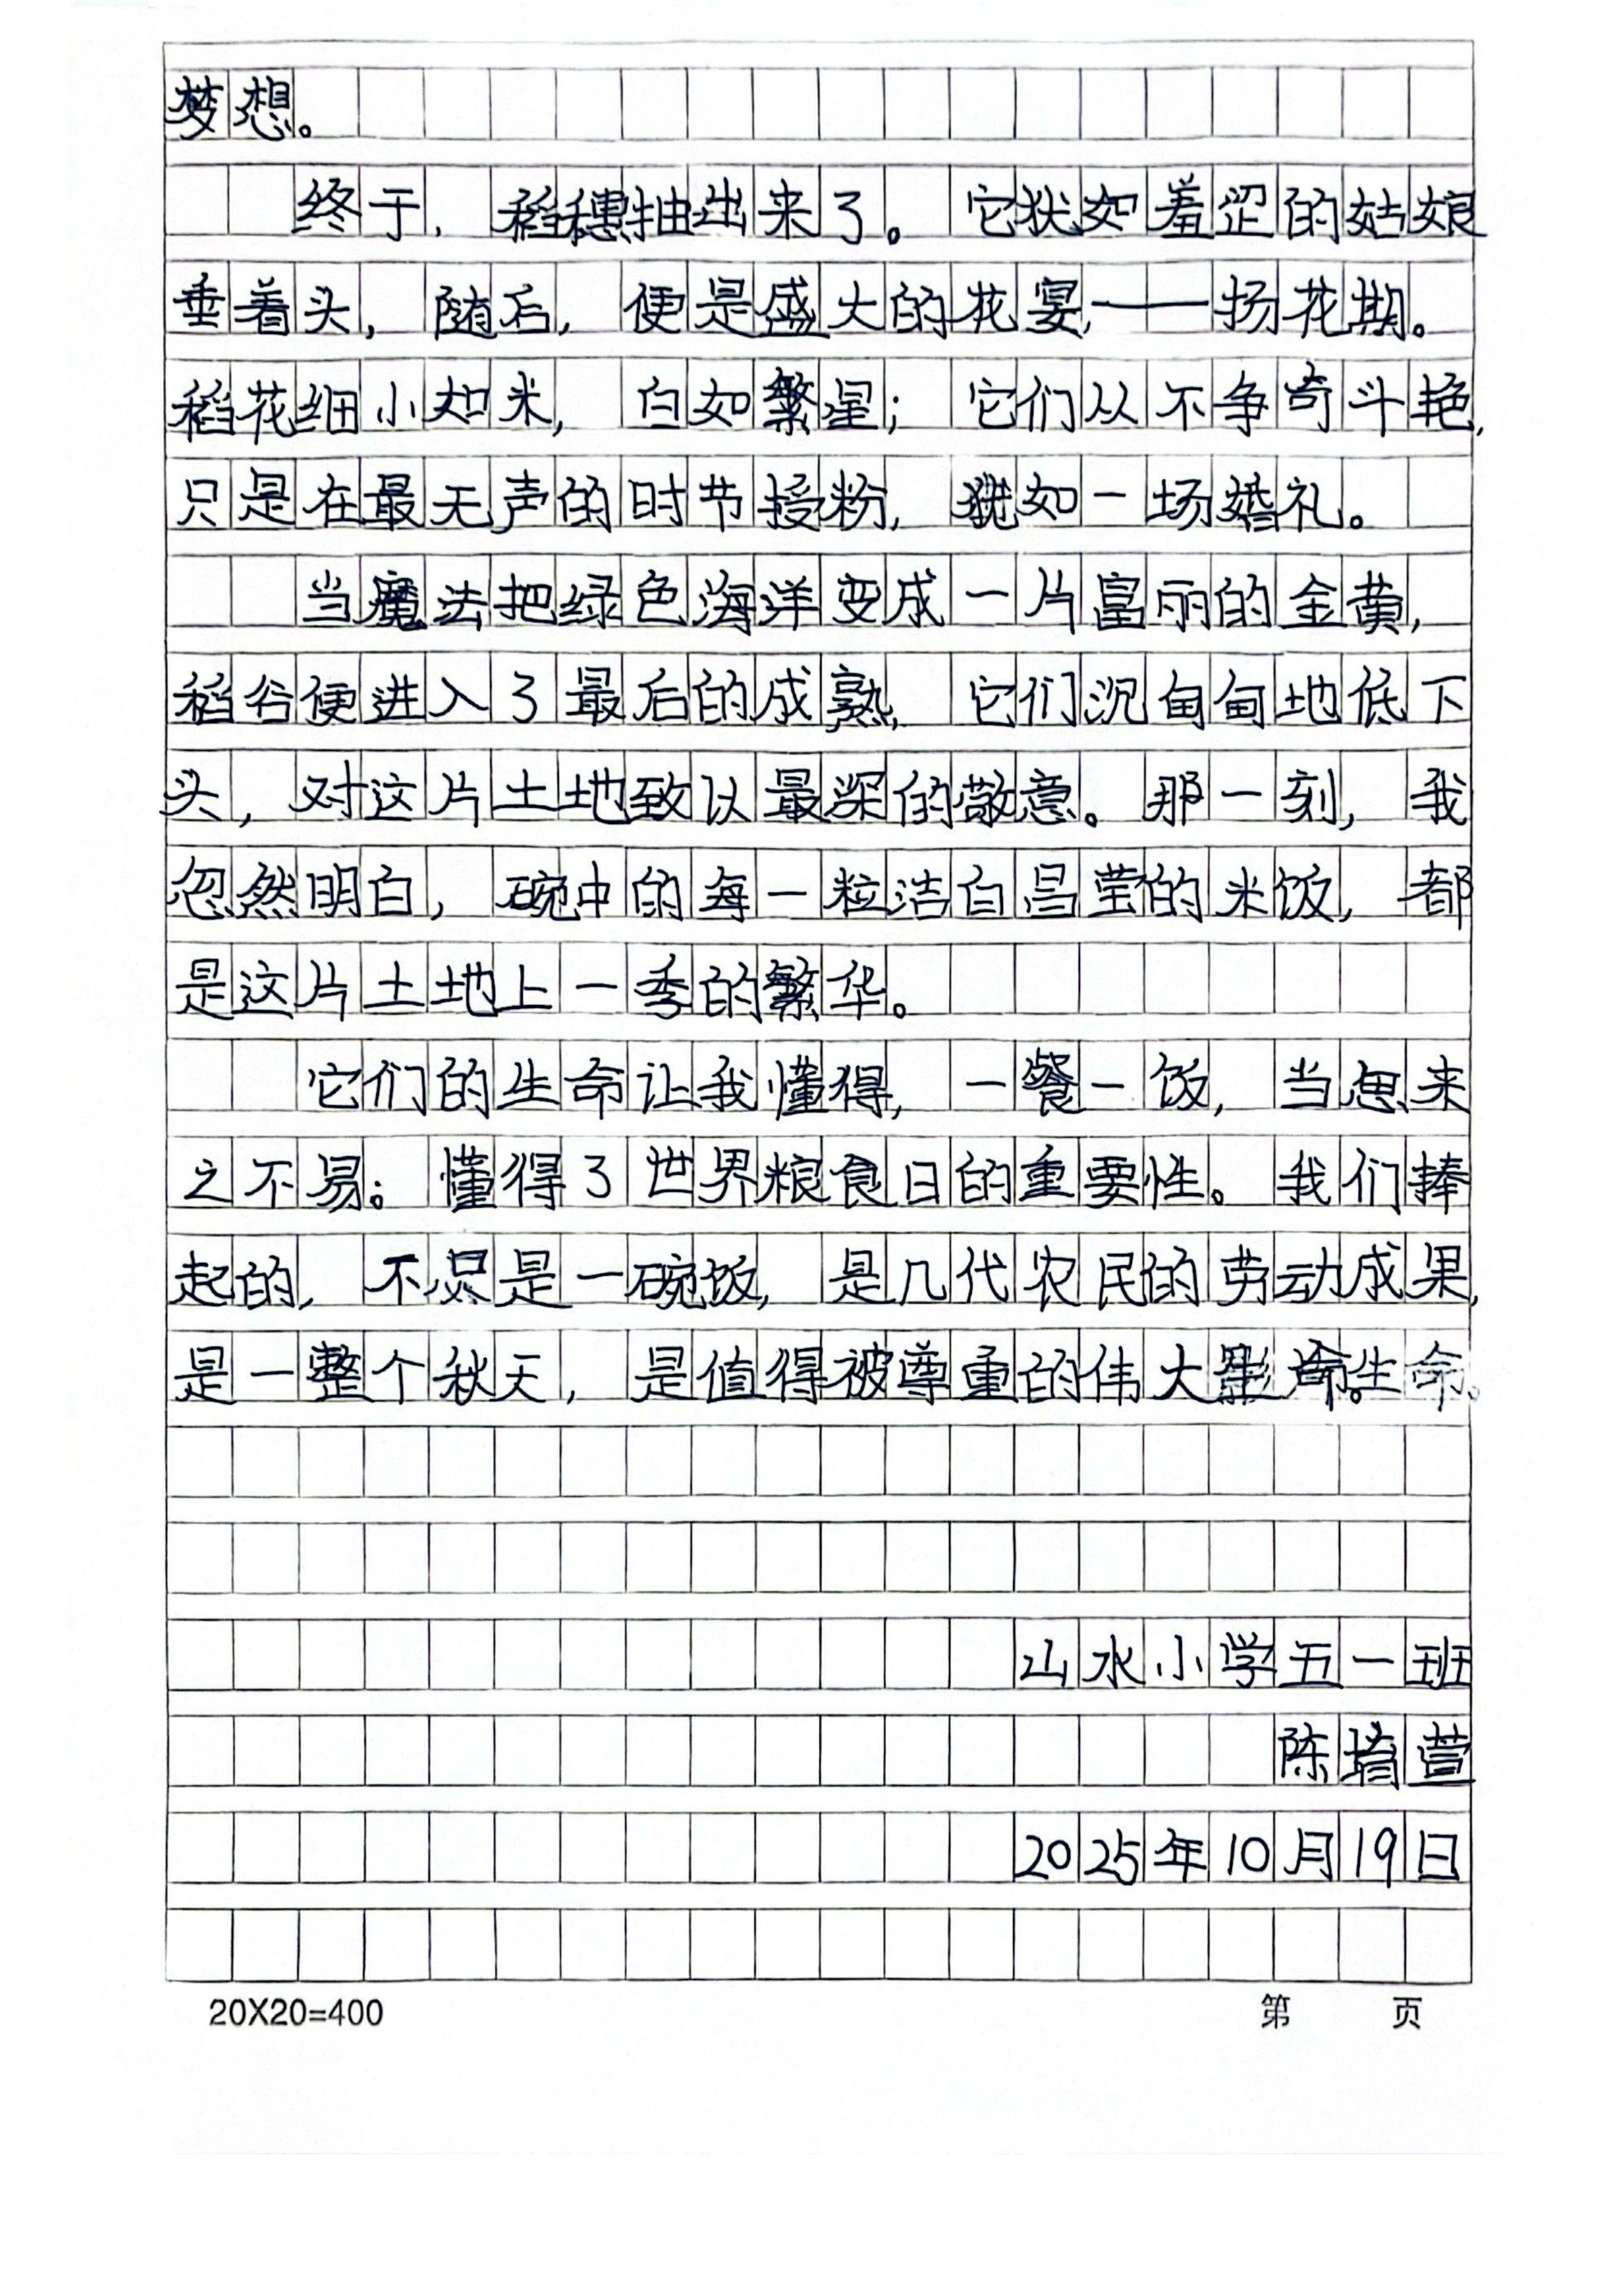 梦想。
终于，稻穗抽出来了。它犹如羞涩的姑娘
垂着头，随后，便是盛大的花宴，——扬花期。
稻花细小如米，白如繁星；它们从不争奇斗艳，
只是在最无声的时节授粉，犹如一场婚礼。
当魔法把绿色海洋变成一片富丽的金黄，
稻谷便进入了最后的成熟，它们沉甸甸地低下
头，对这片土地致以最深的敬意。那一刻，我
忽然明白，碗中的每一粒洁白昌莹的米饭，都
是这片土地上一季的繁华。
它们的生命让我懂得，一餐一饭，当思来
之不易。懂得了世界粮食日的重要性。我们捧
起的，不只是一碗饭，是几代农民的劳动成果，
是一整个秋天，是值得被尊重的伟大生命。
山水小学五一班
陈堉萱
2025年10月19日
20X20=400
第 页